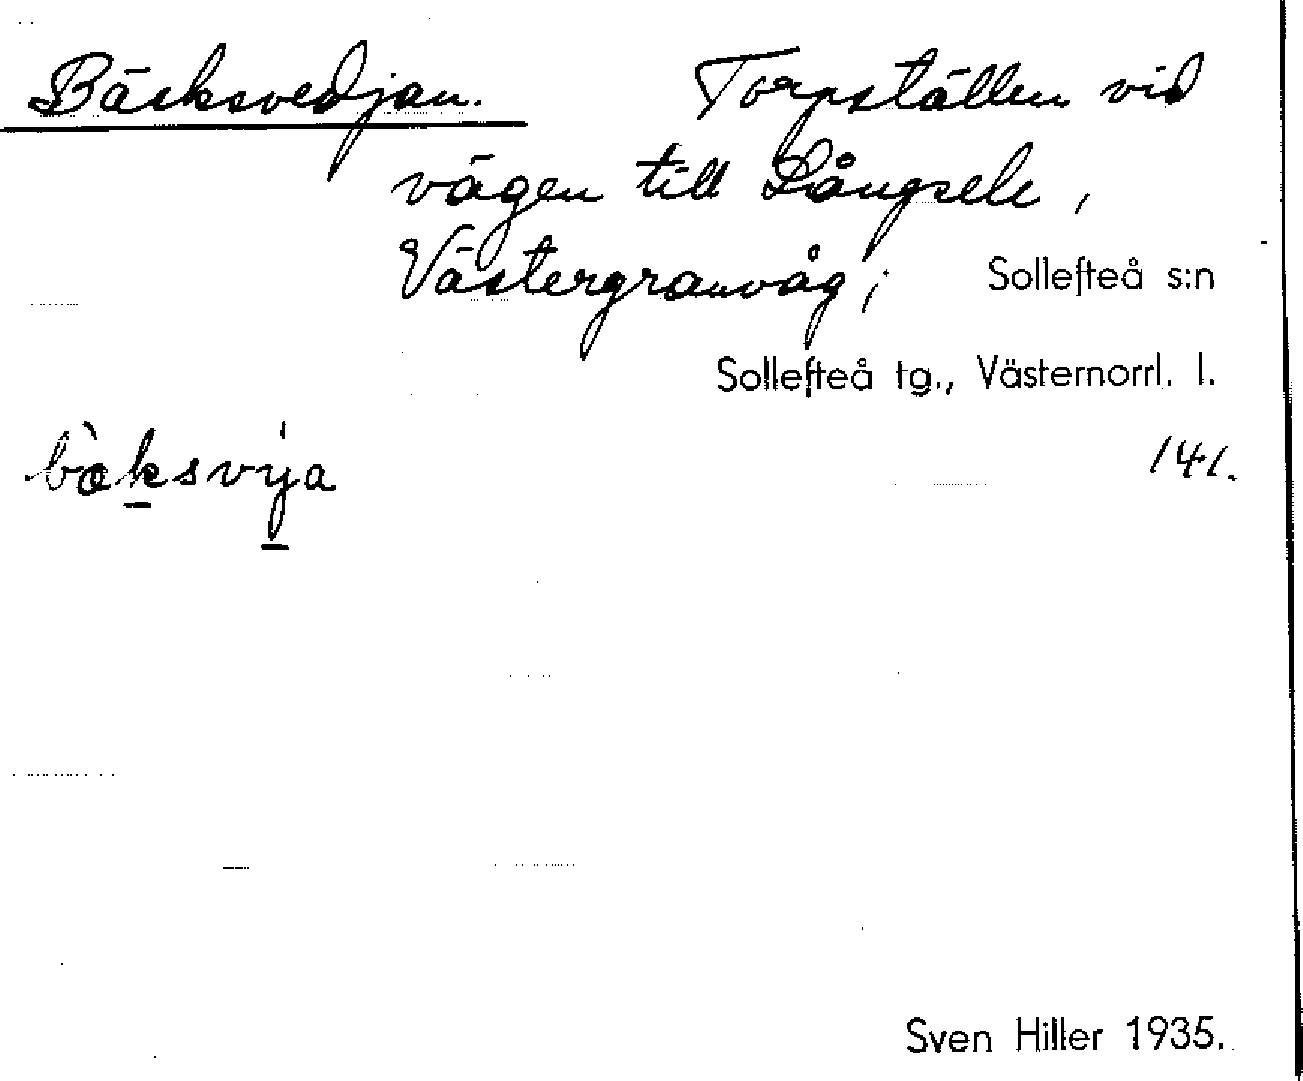 Bäcksvedjan. Torpställen vid
vägen till Långsele,
Västergranvåg; Sollefteå s:n
Sollefteå tg., Västernorrl. l.
bæ̀ksvı̍ja 141.
Sven Hiller 1935.